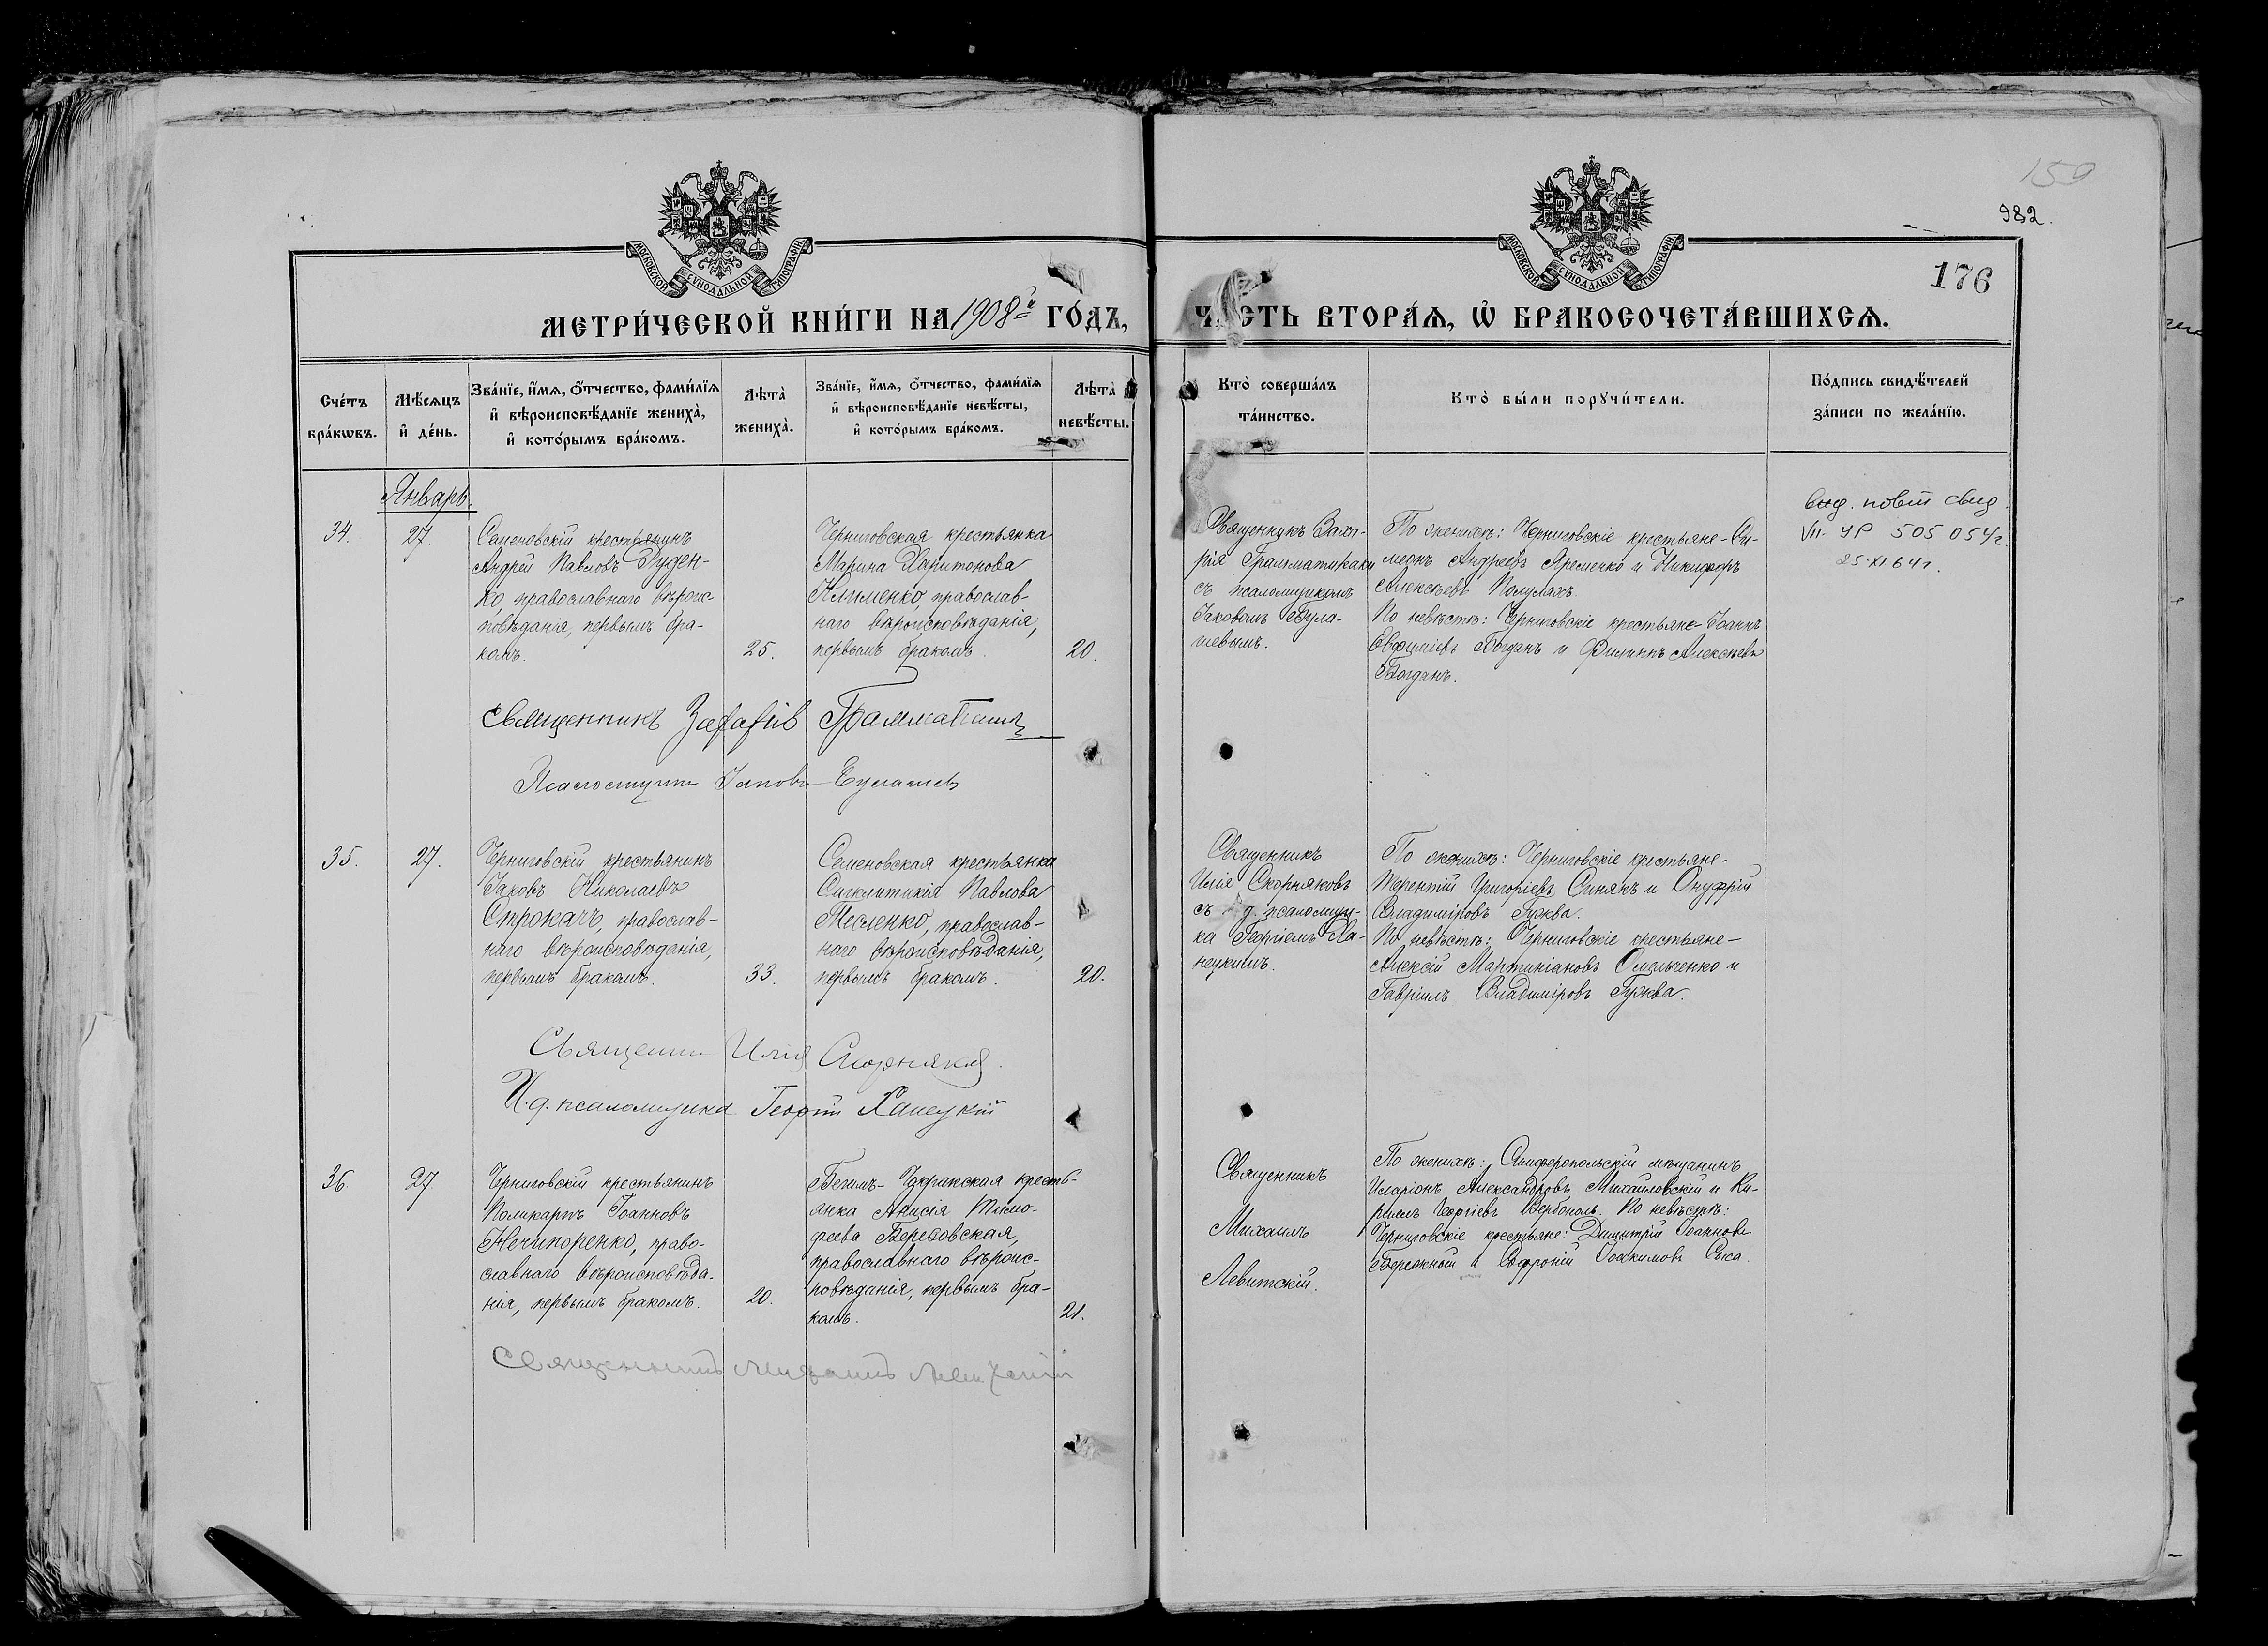 159
982.
176
МОСКОВСКОЙ СѴНОДАЛЬНОЙ ТИПОГРАФІИ
МОСКОВСКОЙ СѴНОДАЛЬНОЙ ТИПОГРАФІИ
МЕТРИ́ЧЕСКОЙ КНИ́ГИ НА 1908й ГО́ДЪ,
ЧАСТЬ ВТОРА́Ѧ, Ѡ҆ БРАКОСОЧЕТА́ВШИХСѦ.
Сче́тъ бра́кѡвъ.
Мѣ́сѧцъ и҆ де́нь.
Зва́нїе, и҆́мѧ, ѻ҆́тчество, фами́лїѧ
и҆ вѣроисповѣ́данїе жениха̀,
и҆ кото́рымъ бра́комъ.
Лѣ́та̀ жениха̀.
Зва́нїе, и҆́мѧ, ѻ҆́тчество, фами́лїѧ
и҆ вѣроисповѣ́данїе невѣ́сты,
и҆ кото́рымъ бра́комъ.
Лѣ́та̀ невѣ́сты.
Кто̀ соверша́лъ
та́инство.
Кто̀ бы́ли порꙋчи́тели.
По́дпись свидѣ́телей
за́писи по жела́нїю.
Январь.
34.
27.
Семеновскій крестьянинъ
Андрей Павловъ Руден-
ко, православнаго вѣроис-
повѣданія, первымъ бра-
комъ.
25.
Черниговская крестьянка
Марина Харитонова
Клименко, православ-
наго вѣроисповѣданія,
первымъ бракомъ.
20.
Священникъ Заха-
рія Грамматикаки
съ псаломщикомъ
Іаковомъ Була-
шевымъ.
По женихѣ: Черниговскіе крестьяне - Си-
меонъ Андреевъ Яременко и Никифоръ
Алексѣевъ
По невѣстѣ: Черниговскіе крестьяне - Іоаннъ
Евфиміевъ Богданъ и Филиппъ Алексѣевъ
Богданъ.
505 054
25·XI 64 г.
Священникъ
Псаломщикъ Іаковъ Булашев
35.
27.
Черниговскій крестьянинъ
Іаковъ Николаевъ
Строкачъ, православ-
наго вѣроисповѣданія,
первымъ бракомъ.
33.
Семеновская крестьянка
Сигклитикія Павлова
Тесленко, православ-
наго вѣроисповѣданія,
первымъ бракомъ.
20.
Священникъ
Илія Скорняковъ
съ д. псаломщи-
ка Георгіемъ Ха-
нецкимъ.
По женихѣ: Черниговскіе крестьяне -
Терентій Григоріевъ Синякъ и Онуфрій
Владиміровъ Гужва.
По невѣстѣ: Черниговскіе крестьяне -
Алексій Мартиніановъ Омельченко и
Гавріилъ Владиміровъ Гужва.
Священник Илія Скорняков.
И. д. псаломщика Георгій Ханецкій
36.
27
Черниговскій крестьянинъ
Поликарпъ Іоанновъ
Нечипоренко, право-
славнаго вѣроисповѣда-
нія, первымъ бракомъ.
20.
Бегимъ-Чокракская кресть-
янка Анисія Тимо-
феева Березовская,
православнаго вѣроис-
повѣданія, первымъ бра-
комъ.
21.
Священникъ
Михаилъ
Левитскій.
По женихѣ: Симферопольскій мѣщанинъ
Иларіонъ Александровъ Михайловскій и Ки-
риллъ Георгіевъ Вербополь. По невѣстѣ:
Черниговскіе крестьяне: Димитрій Іоанновъ
Бережный и Софроній Іоакимовъ Сыса.
Священникъ Михаилъ Левитскій